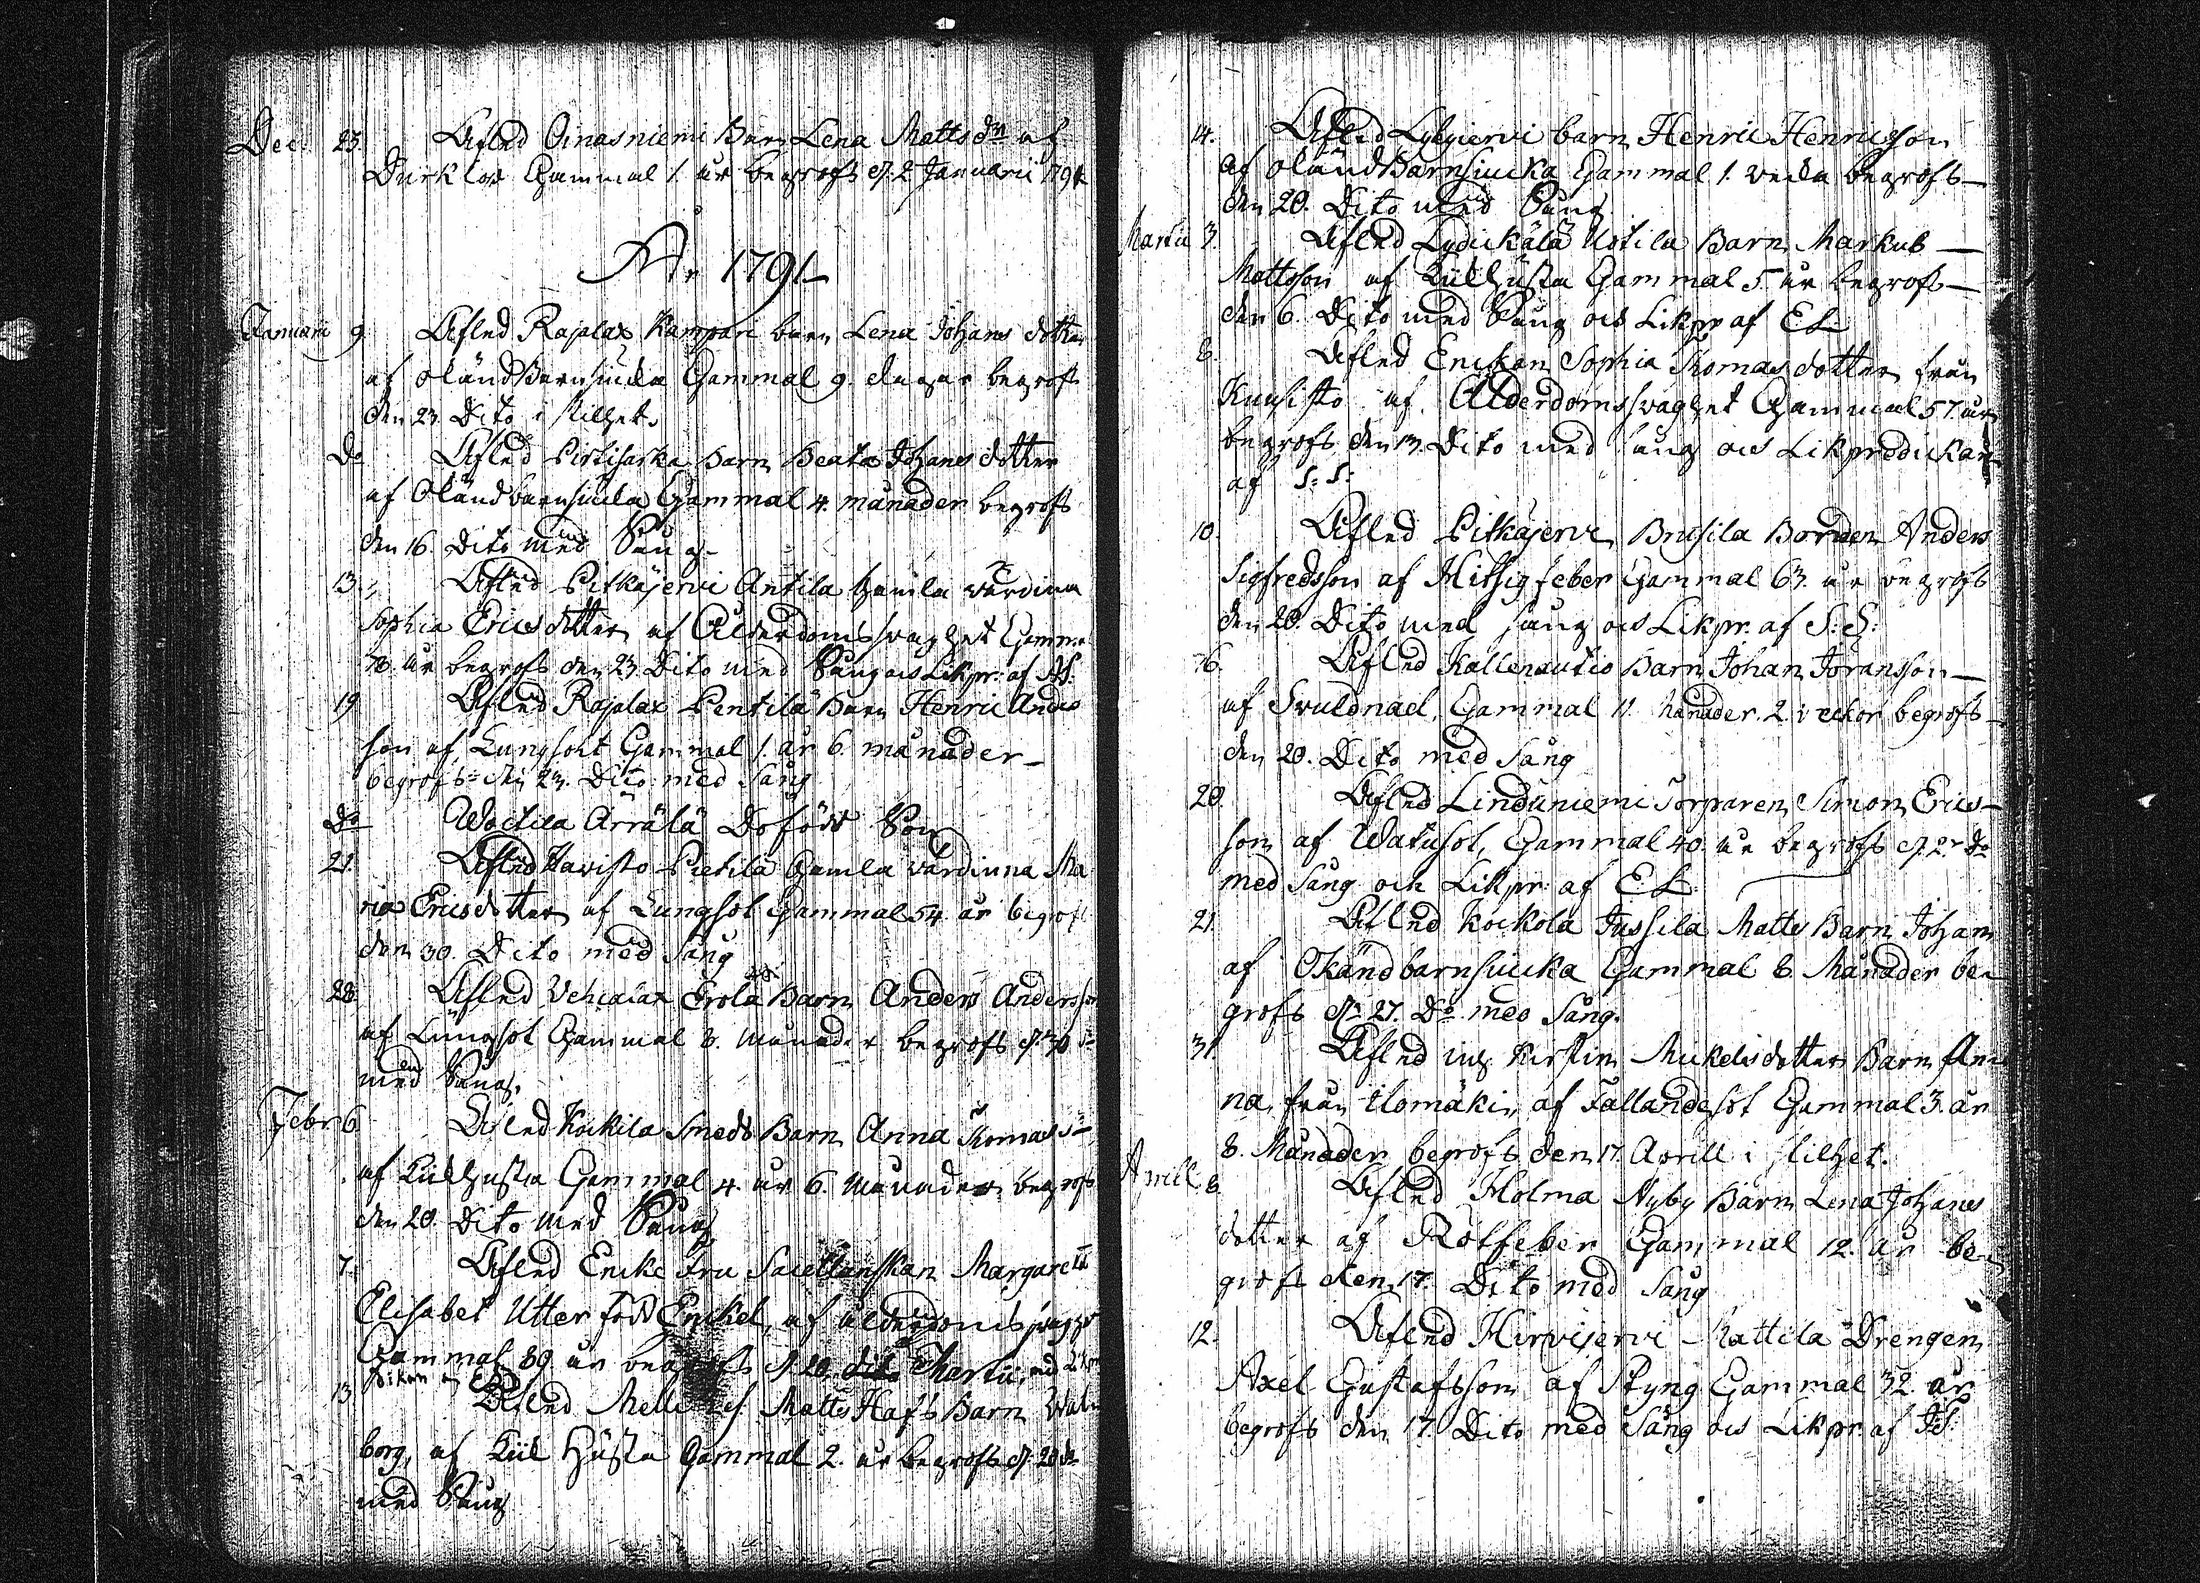 Dec. 23. Afled Oinasniemi Barn Lena Matts dr af
Gammal 1. år begrofs d. 2 Januarii 1791
Ao 1791
Januari 9 Afled Rajalax Kampari barn Lena Johans dotter
af okändBarnsiucka Gammal 9. dagar begrofs
den 23 Dito i stillhet.
Do Afled Barn Beata Johans dotter
af Okändbarnsiucka Gammal 4. månader begrofs
den 16. Dito med Sång
13. Afled Pitkäjervi Antila Gamla värdinna
Sophia Ericsdotter af Ålderdomsswaghet Gamma
78. år begrofs den 23 Dito med Sång och Likpr. af
19 Afled Rajalax Pentilä Barn Henric Anders
son af Lungsoht Gammal 1. år 6. månader
begrofs den 23. Dito med Sång
Do Ärrälä Döfödd Son
21. Afled Kavisto Pietilä Gamla värdinna Ma
ria Ericsdotter af Lungsot Gammal 54. år begrofs
den 30. Dito med Sång
28 Afled Vehcalax Erola Barn Anders Andersson
af Lungsot Gammal 8. månader begrofs d. 30 do
med Sång.
Febr 6 Afled Kockila Smeds Barn Anna Thomas dr
af Kikhosta Gammal 4. år 6. månader begrofs
den 20. Dito med Sång
7. Afled Encke Fru Margareta
Elisabet Utter född Enckel, af ålderdomsswaghet
Gammal 89. år begrofs d. 20. Martii, med Likpre
dikan af
13 Afled Matts Hafs Barn Wal
borg, af Kik Hosta Gammal 2. år begrofs d. 20 do
med Sång
14. Afled Lylyjervi barn Henric Henricsson
af okändBarnsiucka Gammal 1. vecka begrofs
den 20. Dito med Sång
Martii 3. Afled Lydickälä Uotila Barn Markus
Mattsson af Kikhosta Gammal 5. år begrofs
den 6. Dito med Sång och Likpr af E.L
8. Afled Enckan Sophia Thomasdotter från
Kuusisto af Ålderdomsswaghet Gammal 57. år
begrofs den 13. Dito med sång och Likpredickan
af S: S:
10. Afled Pitkäjervi Brusila Bonden Anders
Sigfredsson af Hitsigfeber Gammal 63. år begrofs
den 20. Dito med sång och Likpr. af S: S:
16. Afled Kallenautio Barn Johan Jöransson
af Svuldnad, Gammal 11. Månader 2. veckor begrofs
den 20. Dito med Sång
20. Afled Linduniemi Torparen Simon Erics
son af Watusot, Gammal 40. år begrofs d. 27 do
med Sång och Likpr. af E.L.
21. Afled Kockola Jussila Matts Barn Johan
af Okändbarnsiucka Gammal 8. Månader be
grofs d. 27. Do med Sång.
31 Afled Kirstin Mickelsdotters Barn An
na, från Homäki, af Fallandesot Gammal 3. år
8. Månader begrofs den 17. Aprill i stillhet.
Aprill 8. Afled Holma Nyby Barn Lena Johans
dotter af Rötfeber Gammal 12. år be
grofs den 17. Dito med Sång
12. Afled Hirvijervi Mattila Drengen
Axel Gustafsson af Styng Gammal 32. år
begrofs den 17. Dito med Sång och Likpr. af